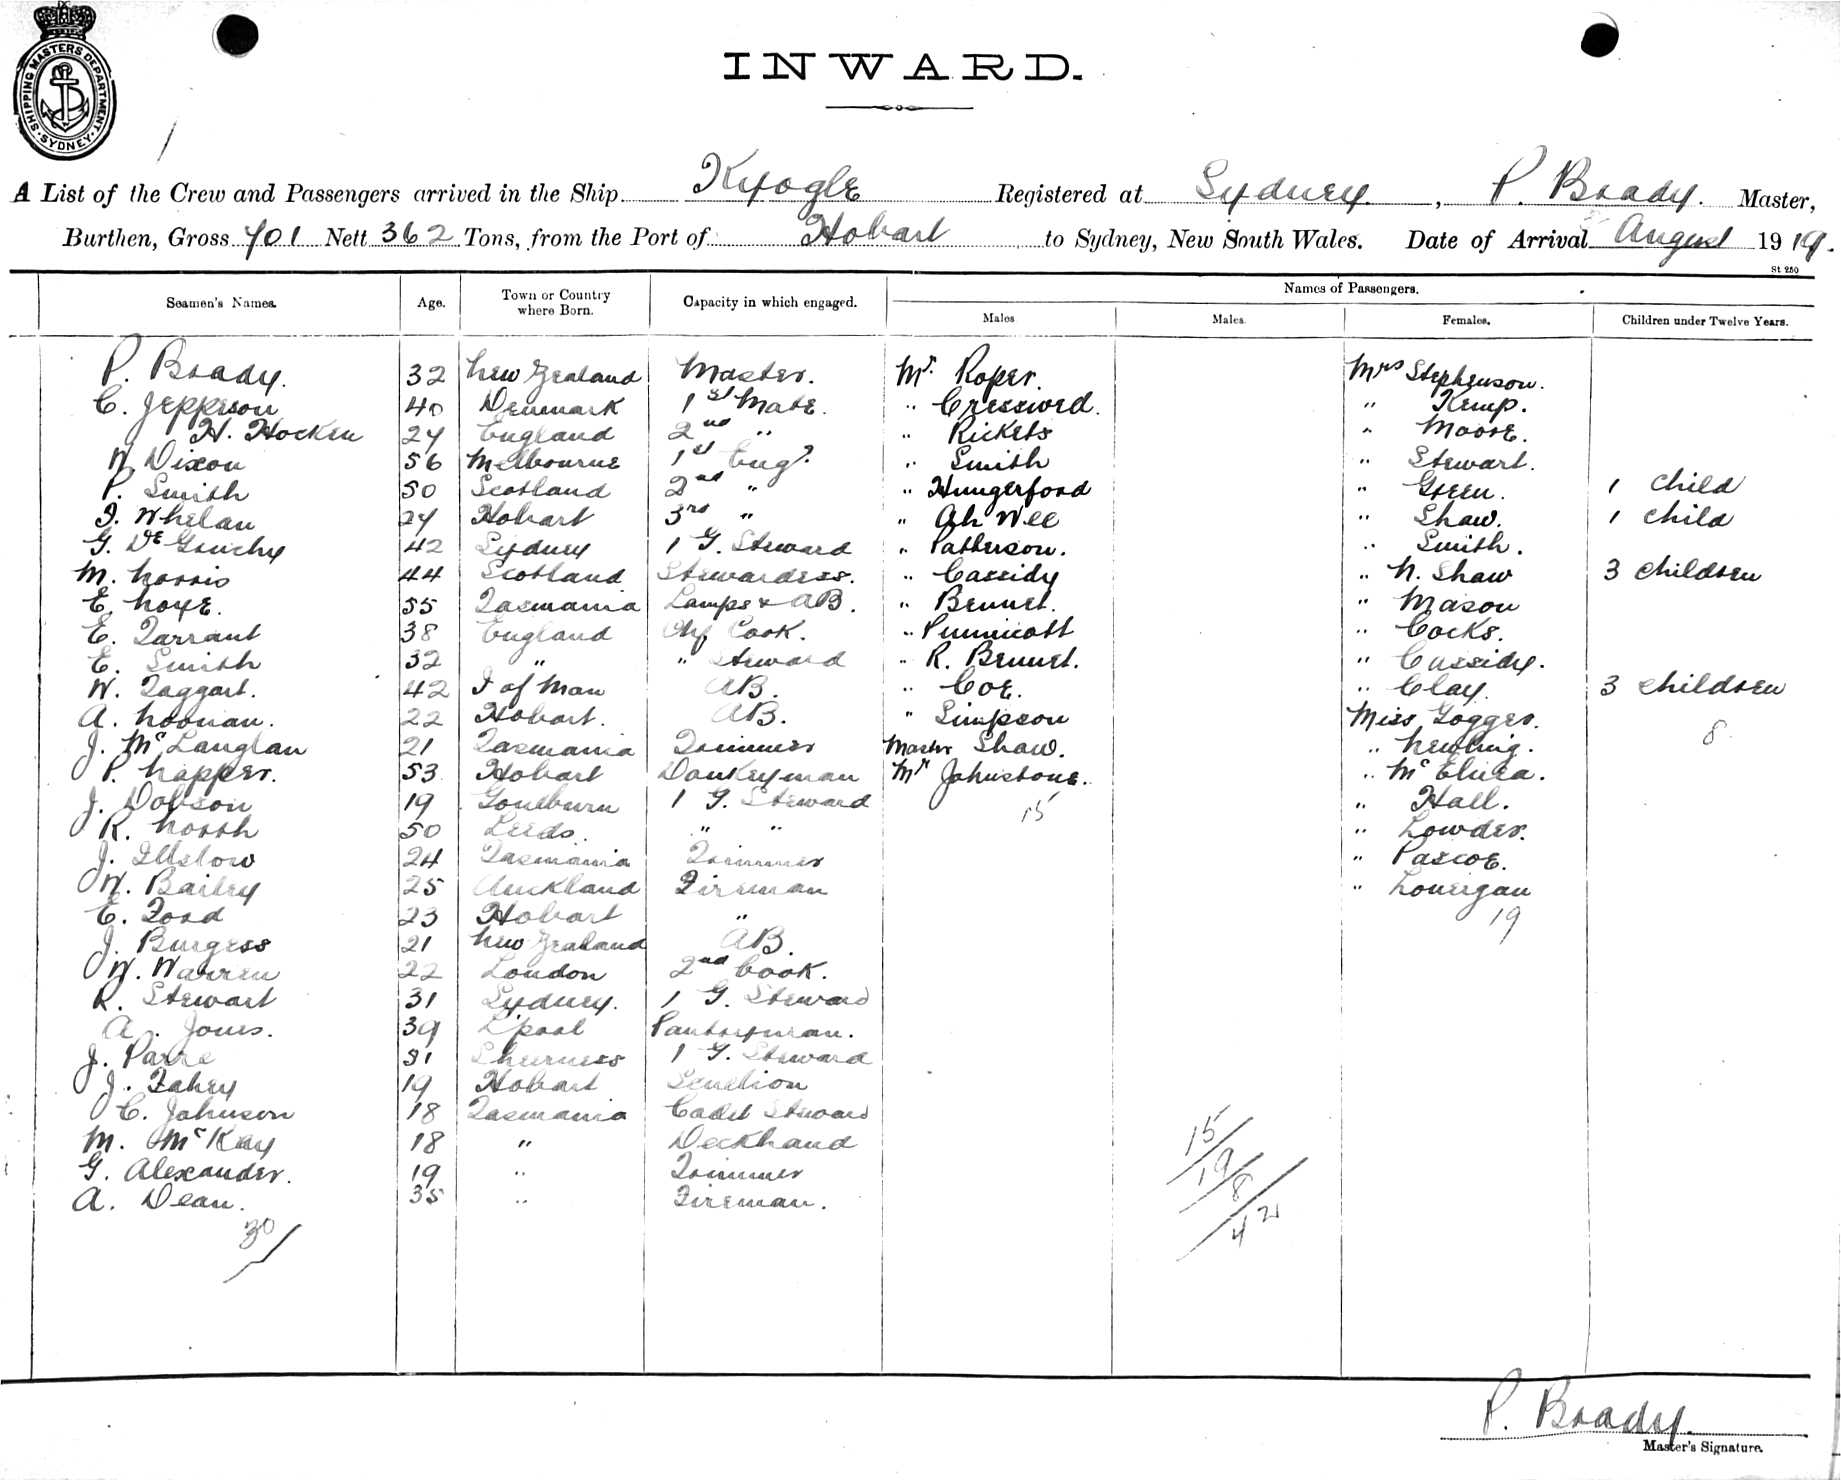 SHIPPING MASTERS DEPARTMENT. SYDNEY
INWARD.
A List of the Crew and Passengers arrived in the Ship Kyogle Registered at Sydney, P. Brady. Master,
Burthen, Gross 701 Nett 362 Tons, from the Port of Hobart to Sydney, New South Wales. Date of Arrival August 1919.
St 250
Names of Passengers.
Seamen's Names. Age. Town or Country where Born. Capacity in which engaged. Males Males. Females. Children under Twelve Years.
P. Brady. 32 New Zealand Master. Mr. Roper. Mrs Stephenson.
C. Jeppeson 40 Denmark 1st Mate. " " Kemp.
H. Hocken 24 England 2nd " " Rickets " Moore.
W. Dixon 56 Melbourne 1st Eng? " Smith " Stewart.
P. Smith 50 Scotland 2nd " " Hungerford " Green. 1 Child
J. Whelan 24 Hobart 3rd " " Ah Wee " Shaw. 1 Child
G. De Gruchy 42 Sydney 1 G. Steward " Patterson. " Smith.
M. Norris 44 Scotland Stewardess. " Cassidy " N. Shaw 3 Children
E. Noye. 55 Tasmania Lamps & AB. " Bennet. " Mason
E. Tarrant 38 England Chf Cook. " " Cocks.
E. Smith 32 " " Steward " R. Bennet. " Cassidy.
W. Taggart. 42 I of Man AB. " Coe. " Clay. 3 Children
A. Noonan. 22 Hobart. AB. " Simpson Miss Gogger.
8
J. McLanglan 21 Tasmania Trimmer Master Shaw. " Newling.
P. Napper. 53 Hobart Donkeyman Mr Johnstone. " Mc
J. Dobson 19 Goulburn 1 G. Steward " Hall.
15
R. North 50 Leeds. " " " Lowder.
J. 24 Tasmania Trimmer " Pascoe.
W. Bailey 25 Auckland Fireman " Lonergan
E. Ford 23 Hobart "
19
J. Burgess 21 New Zealand AB.
W. Warren 22 London 2nd Cook.
R. Stewart 31 Sydney. 1 G. Steward
A. Jones. 39 L'pool Pantryman.
J. 31 Sheerness 1 G. Steward
J. Fahey 19 Hobart Scullion
C. Johnson 18 Tasmania Cadet Steward
M. McKay 18 " Deckhand
G. Alexander. 19 " Trimmer
A. Dean. 35 " Fireman.
30
15
19
8
42
P. Brady.
Master's Signature.